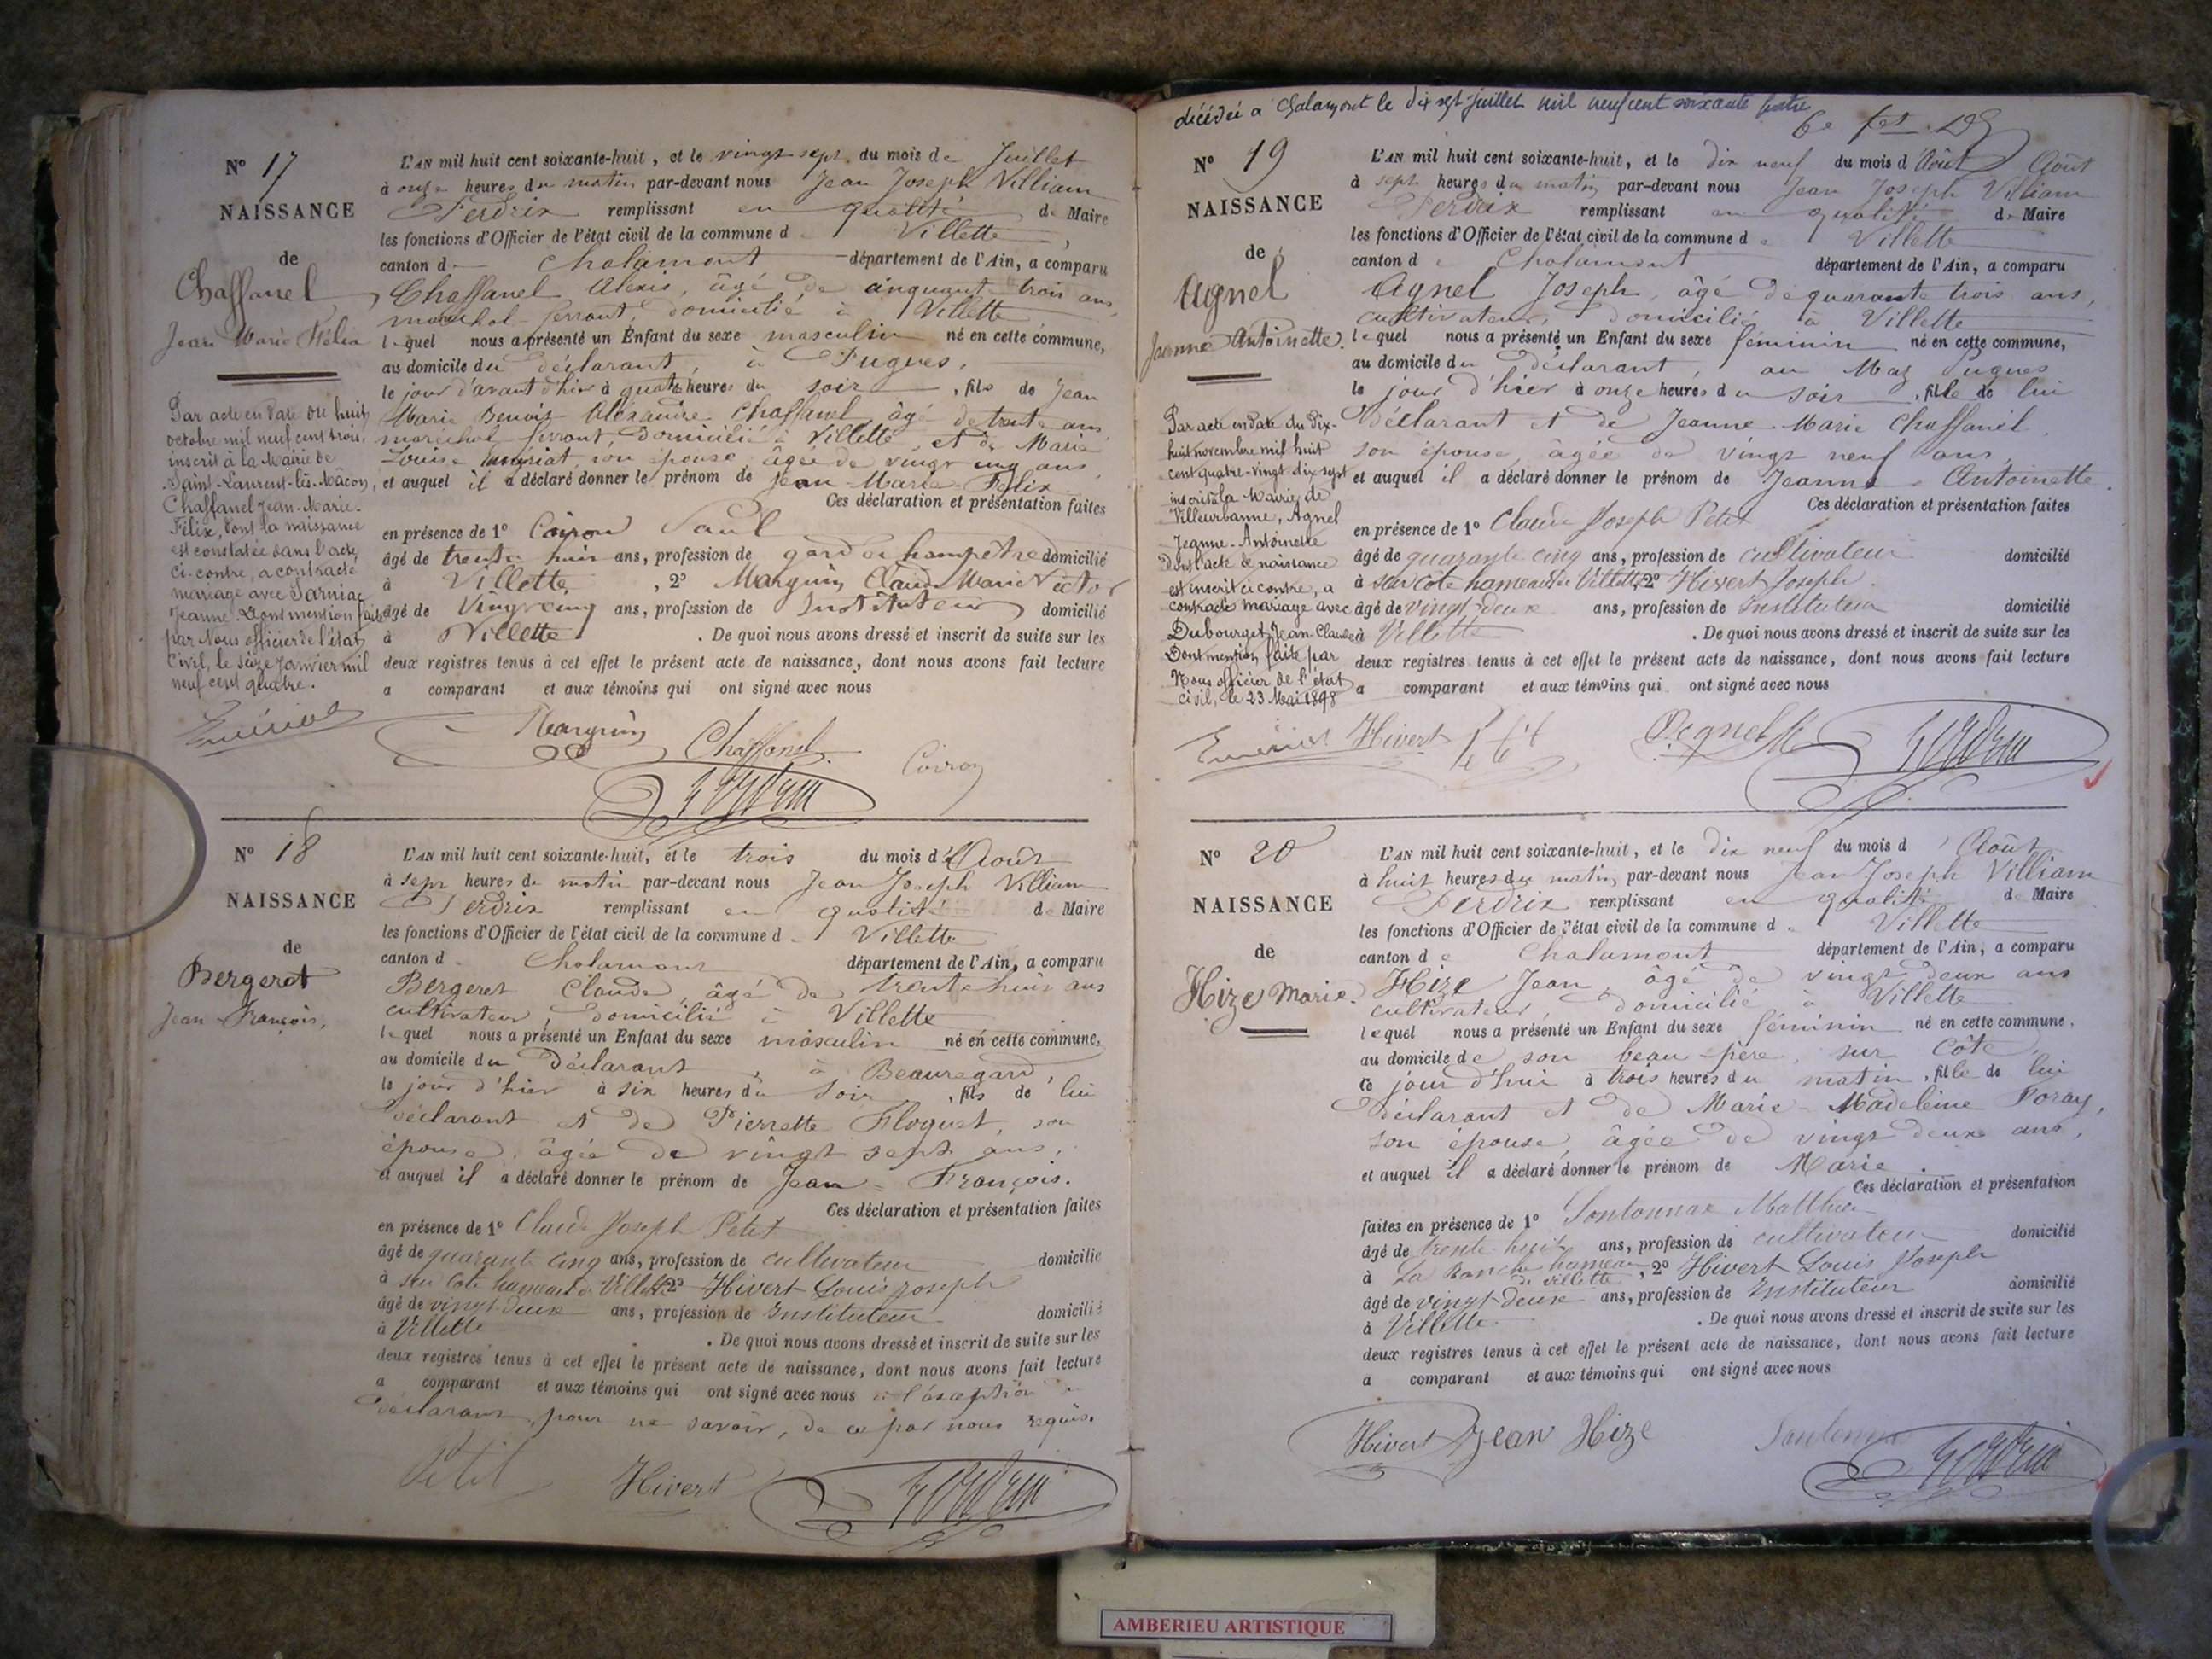 N° 17
NAISSANCE
de
Chaffanel
Jean Marie Félix
L'AN mil huit cent soixante-huit, et le vingt sept du mois de Juillet
à onze heures du matin par-devant nous Jean Joseph Villiam
Perdrix remplissant en qualité de Maire
les fonctions d'Officier de l'état civil de la commune d Villette,
canton d Chalamont département de l'Ain, a comparu
Chaffanel Alexis, âgé de cinquant trois ans,
maréchal ferrant, domicilié à Villette
lequel nous a présenté un Enfant du sexe masculin né en cette commune,
au domicile du déclarant, à Fugues,
le jour d'avant d'hier à quatre heures du soir, fils de Jean
Marie Benoit Alexandre Chaffanel âgé de trente ans
maréchal ferrant, domicilié à Villette, et de Marie
Louise son épouse âgée de vingt cinq ans
et auquel il a déclaré donner le prénom de Jean-Marie-Félix
Ces déclaration et présentation faites
en présence de 1° Coiron Paul
âgé de trente huit ans, profession de garde champêtre domicilié
à Villette, 2° Marguin Claude Marie Victor
âgé de Vingt cinq ans, profession de Instituteur domicilié
à Villette. De quoi nous avons dressé et inscrit de suite sur les
deux registres tenus à cet effet le présent acte de naissance, dont nous avons fait lecture
a comparant et aux témoins qui ont signé avec nous
Par acte en date du huit
octobre mil neuf cent trois,
inscrit à la Mairie de
Saint-Laurent-lès-Mâcon,
Chaffanel Jean-Marie-
Félix, dont la naissance
est constatée dans l'acte
ci-contre, a contracté
mariage avec Sarniac
Jeanne. Dont mention faite
par Nous officier de l'état
civil, le seize Janvier mil
neuf cent quatre.
Marguin
Chaffanel
Coiron
Perdrix
N° 18
NAISSANCE
de
Bergeret
Jean-François,
L'AN mil huit cent soixante-huit, et le trois du mois d'Août
à sept heures du matin par-devant nous Jean Joseph Villiam
Perdrix remplissant en qualité de Maire
les fonctions d'Officier de l'état civil de la commune d Villette
canton d Chalamont département de l'Ain, a comparu
Bergeret Claude, âgé de trente huit ans
cultivateur, domicilié à Villette
lequel nous a présenté un Enfant du sexe masculin né en cette commune,
au domicile du déclarant, à Beauregard,
le jour d'hier à six heures du soir, fils de lui
déclarant et de Pierrette Floquet, son
épouse, âgée de vingt sept ans,
et auquel il a déclaré donner le prénom de Jean-François.
Ces déclaration et présentation faites
en présence de 1° Claude Joseph Petit
âgé de quarante cinq ans, profession de cultivateur domicilié
à sur Cote hameau de Villette 2° Hivert Louis Joseph
âgé de vingt-deux ans, profession de Instituteur domicilié
à Villette. De quoi nous avons dressé et inscrit de suite sur les
deux registres tenus à cet effet le présent acte de naissance, dont nous avons fait lecture
a comparant et aux témoins qui ont signé avec nous à l'exception
déclarant, pour ne savoir, de ce par nous requis.
Petit
Hivert
Perdrix
décédée à Chalamont le dix sept Juillet mil neuf cent soixante
N° 19
NAISSANCE
de
Agnel
Jeanne Antoinette.
L'AN mil huit cent soixante-huit, et le dix neuf du mois d'Août Août
à sept heures du matin par-devant nous Jean Joseph Villiam
Perdrix remplissant en qualité de Maire
les fonctions d'Officier de l'état civil de la commune de Villette
canton de Chalamont département de l'Ain, a comparu
Agnel Joseph, âgé de quarante trois ans,
cultivateur, domicilié à Villette
lequel nous a présenté un Enfant du sexe féminin né en cette commune,
au domicile du déclarant, au Maz Fugues
le jour d'hier à onze heures du soir, fille de lui
déclarant et de Jeanne-Marie Chaffanel
son épouse, âgée de vingt neuf ans,
et auquel il a déclaré donner le prénom de Jeanne-Antoinette.
Ces déclaration et présentation faites
en présence de 1° Claude Joseph Petit
âgé de quarante cinq ans, profession de cultivateur domicilié
à sur Cote hameau de Villette 2° Hivert Joseph
âgé de vingt-deux ans, profession de Instituteur domicilié
à Villette. De quoi nous avons dressé et inscrit de suite sur les
deux registres tenus à cet effet le présent acte de naissance, dont nous avons fait lecture
a comparant et aux témoins qui ont signé avec nous
Par acte en date du Dix-
huit novembre mil huit
cent quatre-vingt dix sept
inscrit à la Mairie de
Villeurbanne, Agnel
Jeanne-Antoinette
dont l'acte de naissance
est inscrit ci contre, a
contracté mariage avec
Dubourget Jean-Claude
Dont mention faite par
Nous officier de l'état
civil, le 23 Mai 1898
Hivert
Petit
Agnel
Perdrix
N° 20
NAISSANCE
de
Hize Marie.
L'AN mil huit cent soixante-huit, et le dix neuf du mois d Août
à huit heures du matin, par-devant nous Jean Joseph Villiam
Perdrix remplissant en qualité de Maire
les fonctions d'Officier de l'état civil de la commune d Villette
canton de Chalamont département de l'Ain, a comparu
Hize Jean, âgé de vingt deux ans
cultivateur, domicilié à Villette
lequel nous a présenté un Enfant du sexe féminin né en cette commune,
au domicile de son beau-père, sur Côte,
ce jour d'hui à trois heures du matin, fille de lui
déclarant et de Marie-Madeleine Poray,
son épouse, âgée de vingt deux ans,
et auquel il a déclaré donner le prénom de Marie.
Ces déclaration et présentation
faites en présence de 1° Sontonnax Matthieu
âgé de trente huit ans, profession de cultivateur domicilié
à La Ranche hameau de villette, 2° Hivert Louis Joseph
âgé de vingt-deux ans, profession de Instituteur domicilié
à Villette. De quoi nous avons dressé et inscrit de suite sur les
deux registres tenus à cet effet le présent acte de naissance, dont nous avons fait lecture
a comparant et aux témoins qui ont signé avec nous
Hivert
Jean Hize
Perdrix
AMBERIEU ARTISTIQUE